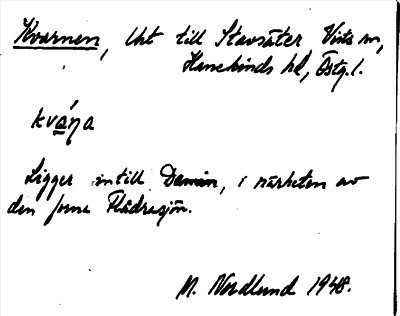 Kvarnen, lht till Stavsäter Vists sn,
Hanekinds hd, Östg.l.
kváṇa
Ligger intill Dammen, i närheten av
den forna Flädrasjön.
M. Nordlund 1948.